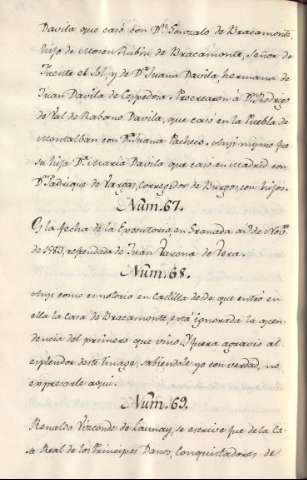 Davila que casó con Dn. Gonzalo de Bracamonte,
hijo de Mosen Rubin de Bracamonte, Señor de
Fuente el Sol, y de Da. Juana Davila, hermana de
Juan Davila de Cespedosa. Procrearon á Dn. Rodrigo
de Val de Rabano Davila, que casó en la Puebla de
Montalban con Da. Juana Pacheco. Assi mismo fue
su hija Da. Maria Davila que casó en Madrid con
Dn. Fadrique de Vargas, Corregidor de Burgos, con hijos.
Núm. 67.
Es la fecha de la Executoria, en Granada a de Nove.
de 1583, refrendada de Juan de Vera.
Núm. 68.
Assi como es notorio en Castilla desde que entró en
ella la Casa de Bracamonte, está ignorada la ascen-
dencia del primero que vino. Y fuera agravio al
esplendor deste linage, sabiendole yo con verdad, no
expresarle aqui.
Núm. 69.
Renaldo Vizconde de Launay, se escrive fue de la Ca-
sa Real de los Principes Danos, Conquistadores de